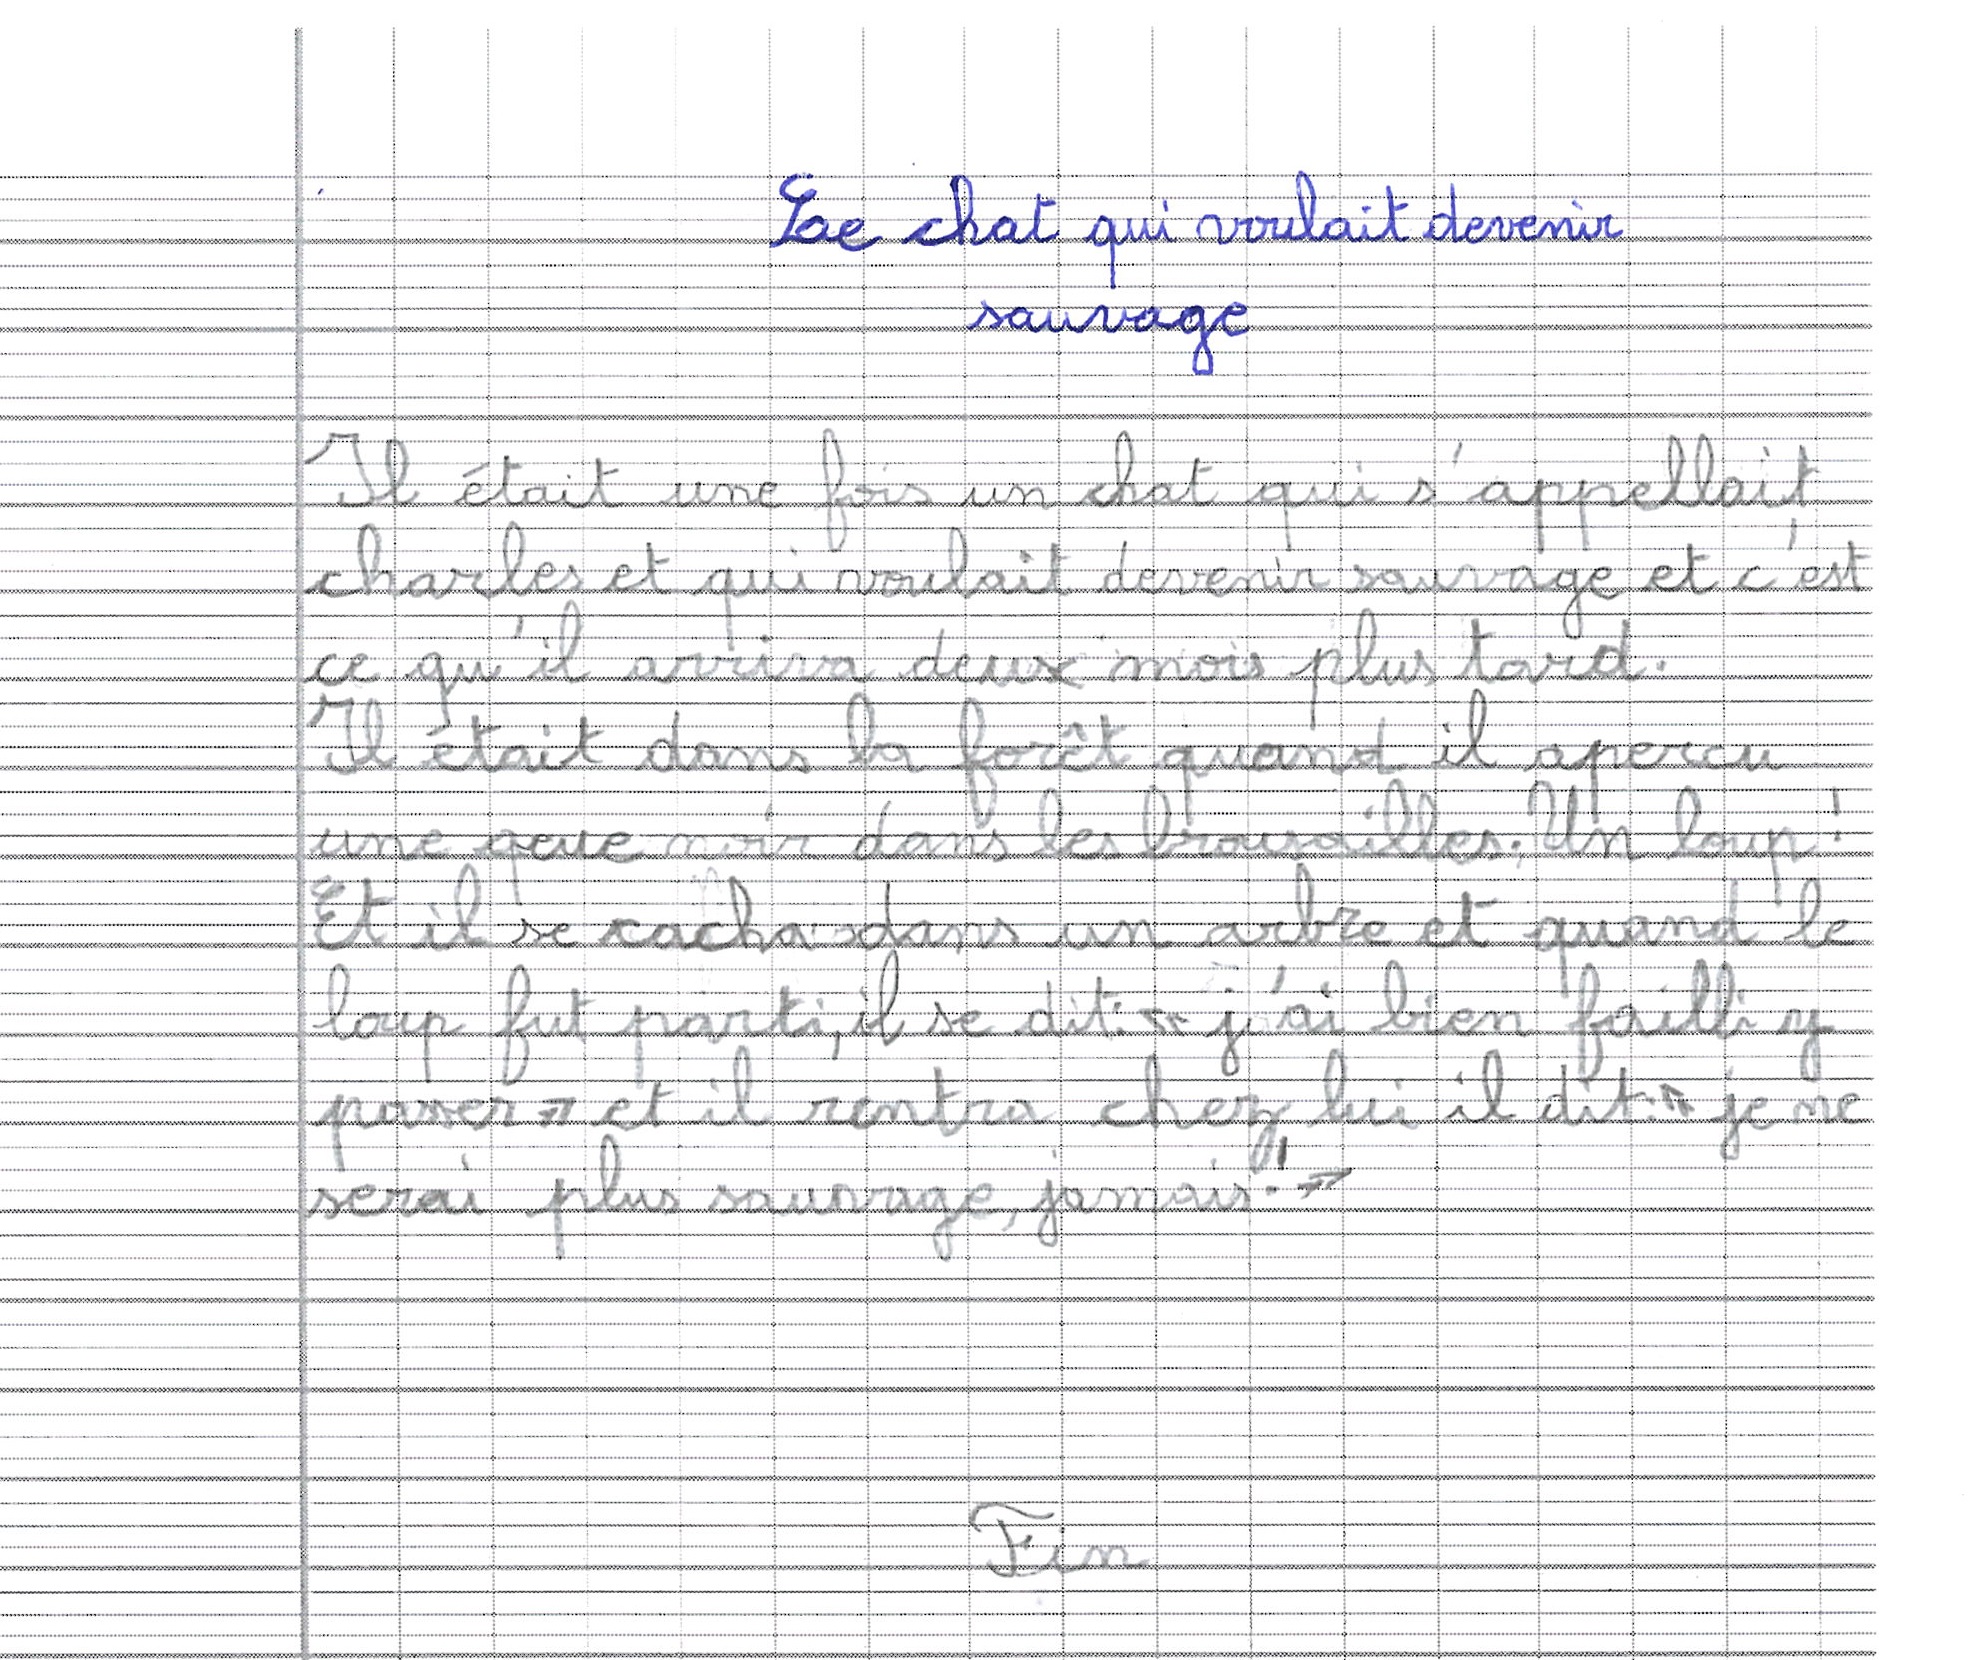 Le chat qui voulait devenir
sauvage
Il était une fois un chat qui s'appellait
charles et qui voulait devenir sauvage et c'est
ce qu'il arriva deux mois plus tard.
Il était dans la forêt quand il apercu
une qeue noir dans les brousailles. Un loup !
Et il se cacha dans un arbre et quand le
loup fut parti, il se dit : « j'ai bien failli y
passer » et il rentra chez lui il dit : « je ne
serai plus sauvage, jamais ! »
Fin